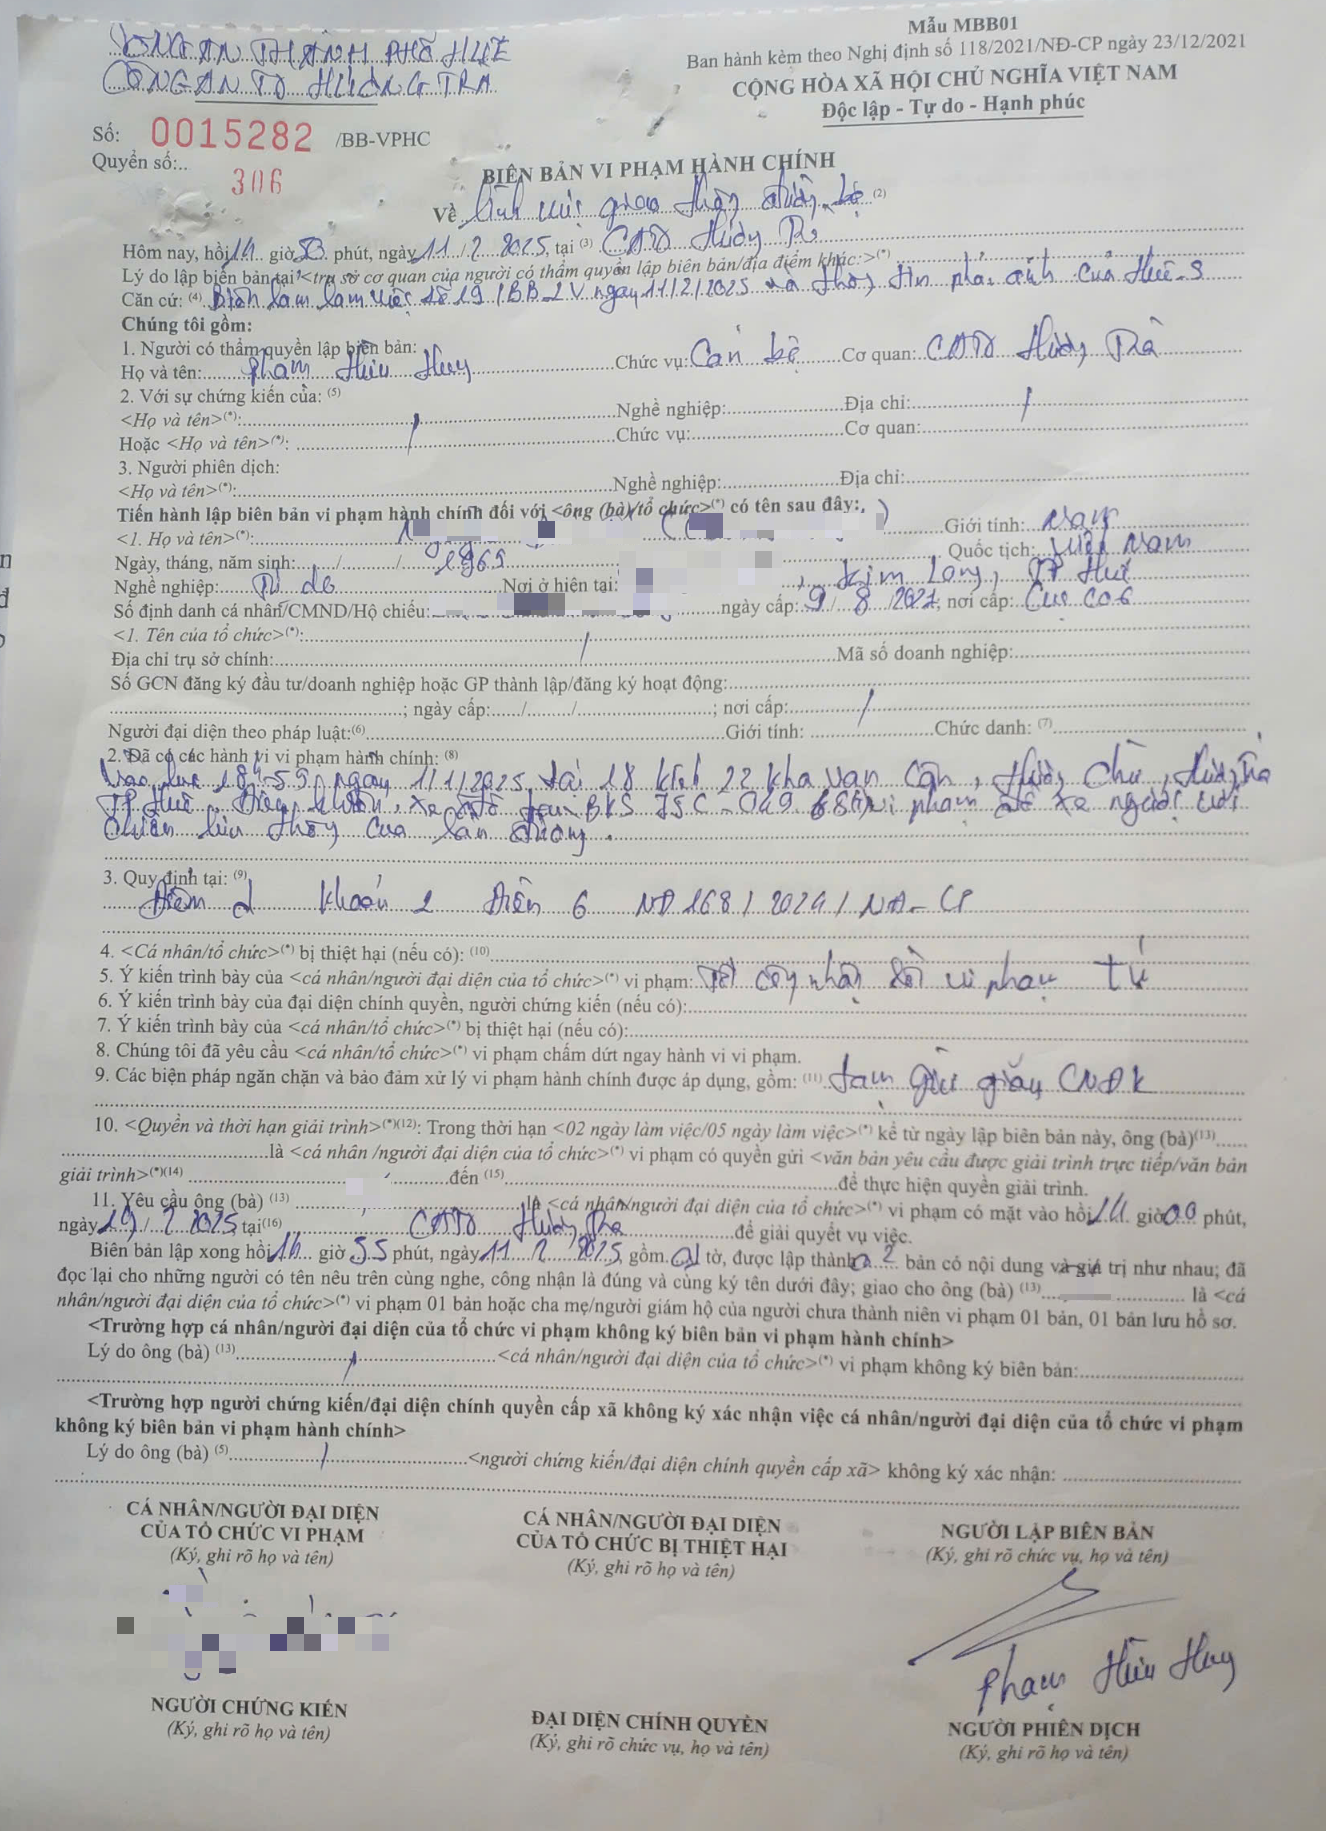 CÔNG AN THÀNH PHỐ HUẾ
CÔNG AN TX HƯƠNG TRÀ
Mẫu MBB01
Ban hành kèm theo Nghị định số 118/2021/NĐ-CP ngày 23/12/2021
CỘNG HÒA XÃ HỘI CHỦ NGHĨA VIỆT NAM
Độc lập - Tự do - Hạnh phúc
Số: 0015282 /BB-VPHC
Quyển số:.. 306
BIÊN BẢN VI PHẠM HÀNH CHÍNH
Về lĩnh vực giao thông đường bộ (2)
Hôm nay, hồi 14 giờ 53 phút, ngày 11/2/2025, tại (3) CATX Hương Trà
Lý do lập biên bản tại <trụ sở cơ quan của người có thẩm quyền lập biên bản/địa điểm khác:>(*)
Căn cứ: (4) Biên bản làm việc số 19/BB-LV ngày 11/2/2025 và thông tin phản ánh của Huế-S
Chúng tôi gồm:
1. Người có thẩm quyền lập biên bản:
Họ và tên: Phạm Hữu Huy Chức vụ: Cán bộ Cơ quan: CATX Hương Trà
2. Với sự chứng kiến của: (5)
<Họ và tên>(*): / Nghề nghiệp: Địa chỉ: /
Hoặc <Họ và tên>(*): / Chức vụ: Cơ quan:
3. Người phiên dịch:
<Họ và tên>(*): Nghề nghiệp: Địa chỉ:
Tiến hành lập biên bản vi phạm hành chính đối với <ông (bà)/tổ chức>(*) có tên sau đây:
<1. Họ và tên>(*): Giới tính: Nam
Ngày, tháng, năm sinh: / / 1969 Quốc tịch: Việt Nam
Nghề nghiệp: Tự do Nơi ở hiện tại: , Kim Long, TP Huế
Số định danh cá nhân/CMND/Hộ chiếu: ngày cấp: 9/8/2021, nơi cấp: Cục C06
<1. Tên của tổ chức>(*): /
Địa chỉ trụ sở chính: Mã số doanh nghiệp:
Số GCN đăng ký đầu tư/doanh nghiệp hoặc GP thành lập/đăng ký hoạt động:
; ngày cấp: / / ; nơi cấp: /
Người đại diện theo pháp luật:(6) Giới tính: Chức danh: (7)
2. Đã có các hành vi vi phạm hành chính: (8)
Vào lúc 18h55 ngày 1/1/2025, tại 18 kiệt 22 Kha Vạn Cân, Hương Chữ, Hương Trà
TP Huế. Điều khiển xe ô tô tải BKS 75C-049 vi phạm đỗ xe ngược với
chiều lưu thông của làn đường.
3. Quy định tại: (9)
Điểm d khoản 2 Điều 6 NĐ 168/2024/NĐ-CP
4. <Cá nhân/tổ chức>(*) bị thiệt hại (nếu có): (10)
5. Ý kiến trình bày của <cá nhân/người đại diện của tổ chức>(*) vi phạm: Tôi công nhận lỗi vi phạm
6. Ý kiến trình bày của đại diện chính quyền, người chứng kiến (nếu có):
7. Ý kiến trình bày của <cá nhân/tổ chức>(*) bị thiệt hại (nếu có):
8. Chúng tôi đã yêu cầu <cá nhân/tổ chức>(*) vi phạm chấm dứt ngay hành vi vi phạm.
9. Các biện pháp ngăn chặn và bảo đảm xử lý vi phạm hành chính được áp dụng, gồm: (11) tạm giữ giấy CNĐK
10. <Quyền và thời hạn giải trình>(*)(12): Trong thời hạn <02 ngày làm việc/05 ngày làm việc>(*) kể từ ngày lập biên bản này, ông (bà)(13)
là <cá nhân /người đại diện của tổ chức>(*) vi phạm có quyền gửi <văn bản yêu cầu được giải trình trực tiếp/văn bản
giải trình>(*)(14) đến (15) để thực hiện quyền giải trình.
11. Yêu cầu ông (bà) (13) là <cá nhân/người đại diện của tổ chức>(*) vi phạm có mặt vào hồi 14 giờ 00 phút,
ngày 19/2/2025, tại(16) CATX Hương Trà để giải quyết vụ việc.
Biên bản lập xong hồi 14 giờ 55 phút, ngày 11/2/2025, gồm 01 tờ, được lập thành 02 bản có nội dung và giá trị như nhau; đã
đọc lại cho những người có tên nêu trên cùng nghe, công nhận là đúng và cùng ký tên dưới đây; giao cho ông (bà) (13) là <cá
nhân/người đại diện của tổ chức>(*) vi phạm 01 bản hoặc cha mẹ/người giám hộ của người chưa thành niên vi phạm 01 bản, 01 bản lưu hồ sơ.
<Trường hợp cá nhân/người đại diện của tổ chức vi phạm không ký biên bản vi phạm hành chính>
Lý do ông (bà) (13) / <cá nhân/người đại diện của tổ chức>(*) vi phạm không ký biên bản:
<Trường hợp người chứng kiến/đại diện chính quyền cấp xã không ký xác nhận việc cá nhân/người đại diện của tổ chức vi phạm
không ký biên bản vi phạm hành chính>
Lý do ông (bà) (5) / <người chứng kiến/đại diện chính quyền cấp xã> không ký xác nhận:
CÁ NHÂN/NGƯỜI ĐẠI DIỆN
CỦA TỔ CHỨC VI PHẠM
(Ký, ghi rõ họ và tên)
CÁ NHÂN/NGƯỜI ĐẠI DIỆN
CỦA TỔ CHỨC BỊ THIỆT HẠI
(Ký, ghi rõ họ và tên)
NGƯỜI LẬP BIÊN BẢN
(Ký, ghi rõ chức vụ, họ và tên)
Phạm Hữu Huy
NGƯỜI CHỨNG KIẾN
(Ký, ghi rõ họ và tên)
ĐẠI DIỆN CHÍNH QUYỀN
(Ký, ghi rõ chức vụ, họ và tên)
NGƯỜI PHIÊN DỊCH
(Ký, ghi rõ họ và tên)